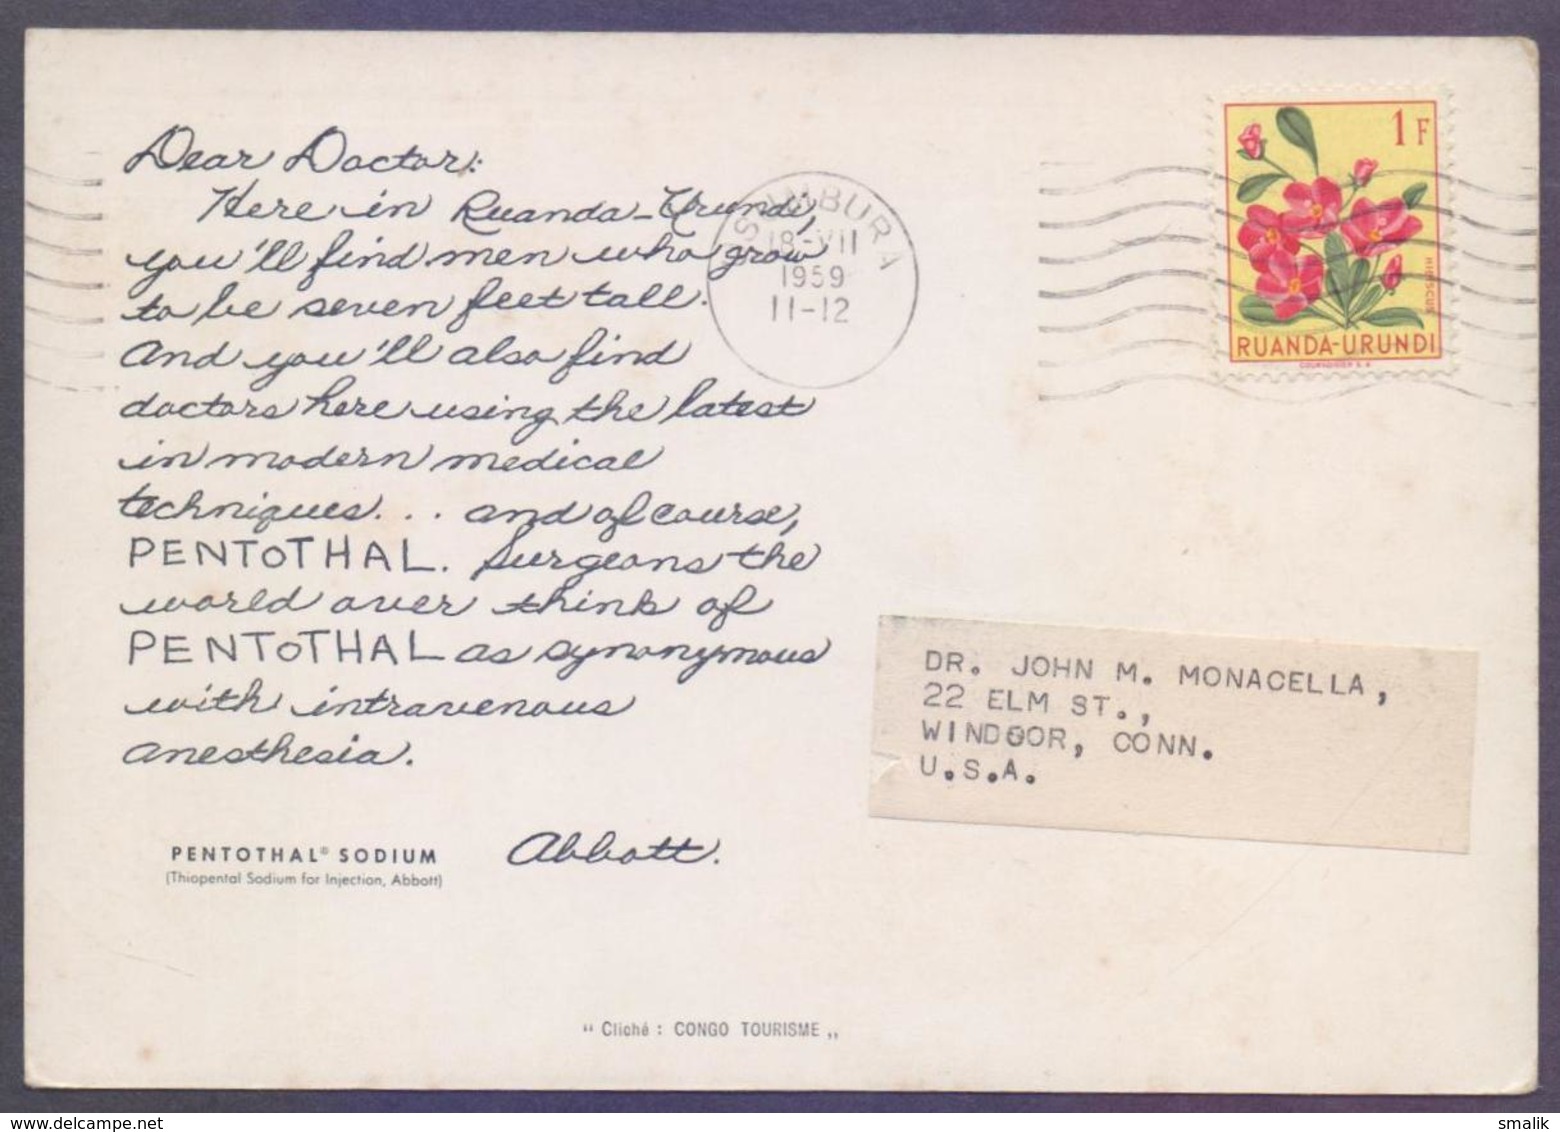 Dear Doctor:
Here in Ruanda-Urundi,
you'll find men who grow
to be seven feet tall.
And you'll also find
doctors here using the latest
in modern medical
techniques... and of course,
PENTOTHAL. Surgeons the
world over think of
PENTOTHAL as synonymous
with intravenous
anesthesia.
Abbott.
PENTOTHAL® SODIUM
(Thiopental Sodium for Injection, Abbott)
"Cliché : CONGO TOURISME"
USUMBURA
18-VII
1959
11-12
1 F
HIBISCUS
RUANDA-URUNDI
COURVOISIER S.A.
DR. JOHN M. MONACELLA,
22 ELM ST.,
WINDOOR, CONN.
U.S.A.
smalik